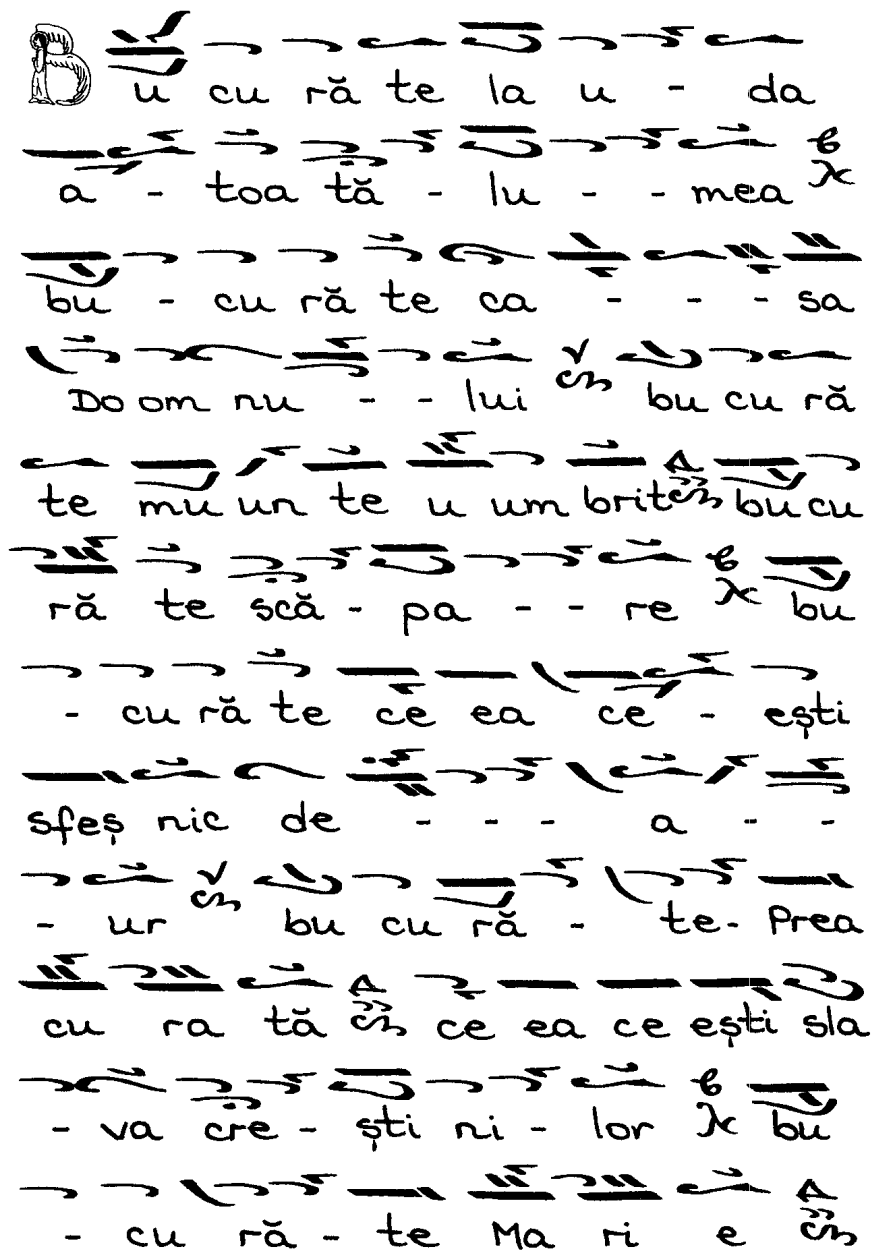 Bu cu ră te la u - da
a - toa tă - lu - - mea
bu - cu ră te ca - - - sa
Do om nu - - lui bu cu ră
te mu un te u um brit bu cu
ră te scă - pa - - re bu
- cu ră te ce ea ce - ești
sfeș nic de - - - a - -
- ur bu cu ră - te- Prea
cu ra tă ce ea ce ești sla
- va cre - ști ni - lor bu
- cu ră - te Ma ri e